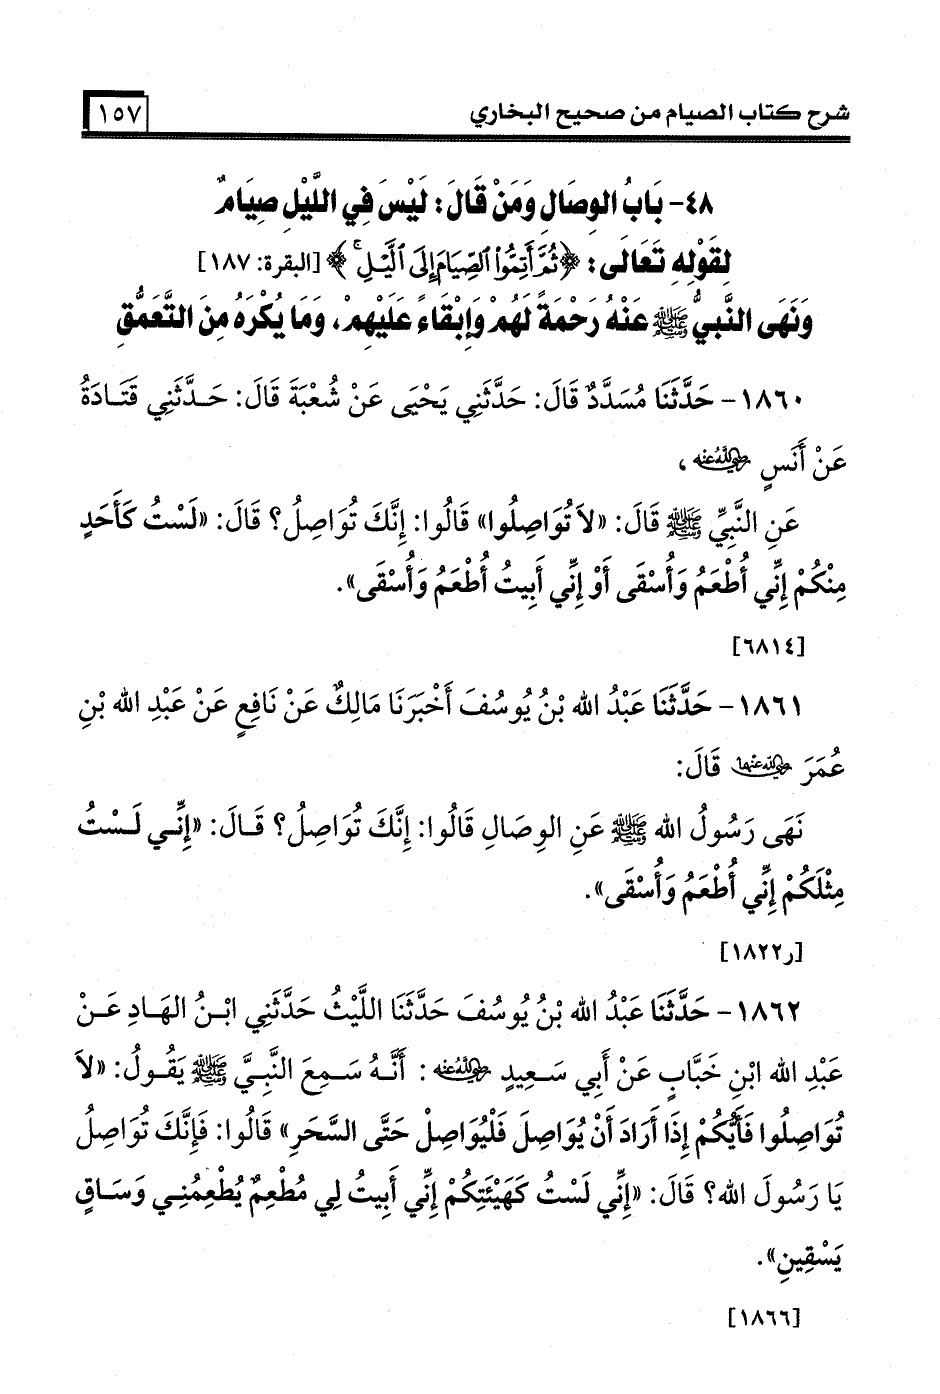 شرح كتاب الصيام من صحيح البخاري
١٥٧
٤٨- بَابُ الوِصَالِ وَمَنْ قَالَ: لَيْسَ فِي اللَّيْلِ صِيَامٌ
لِقَوْلِهِ تَعَالَى: ﴿ثُمَّ أَتِمُّوا۟ ٱلصِّيَامَ إِلَى ٱلَّيْلِ ۚ﴾ [البقرة: ١٨٧]
وَنَهَى النَّبِيُّ ﷺ عَنْهُ رَحْمَةً لَهُمْ وَإِبْقَاءً عَلَيْهِمْ، وَمَا يُكْرَهُ مِنَ التَّعَمُّقِ
١٨٦٠- حَدَّثَنَا مُسَدَّدٌ قَالَ: حَدَّثَنِي يَحْيَى عَنْ شُعْبَةَ قَالَ: حَدَّثَنِي قَتَادَةُ
عَنْ أَنَسٍ رضي الله عنه ،
عَنِ النَّبِيِّ ﷺ قَالَ: «لاَ تُوَاصِلُوا» قَالُوا: إِنَّكَ تُوَاصِلُ؟ قَالَ: «لَسْتُ كَأَحَدٍ
مِنْكُمْ إِنِّي أُطْعَمُ وَأُسْقَى أَوْ إِنِّي أَبِيتُ أُطْعَمُ وَأُسْقَى».
[٦٨١٤]
١٨٦١- حَدَّثَنَا عَبْدُ الله بْنُ يُوسُفَ أَخْبَرَنَا مَالِكٌ عَنْ نَافِعٍ عَنْ عَبْدِ الله بْنِ
عُمَرَ رضي الله عنهما قَالَ:
نَهَى رَسُولُ الله ﷺ عَنِ الوِصَالِ قَالُوا: إِنَّكَ تُوَاصِلُ؟ قَالَ: «إِنِّي لَسْتُ
مِثْلَكُمْ إِنِّي أُطْعَمُ وَأُسْقَى».
[ر١٨٢٢]
١٨٦٢- حَدَّثَنَا عَبْدُ الله بْنُ يُوسُفَ حَدَّثَنَا اللَّيْثُ حَدَّثَنِي ابْنُ الهَادِ عَنْ
عَبْدِ الله ابْنِ خَبَّابٍ عَنْ أَبِي سَعِيدٍ رضي الله عنه : أَنَّهُ سَمِعَ النَّبِيَّ ﷺ يَقُولُ: «لاَ
تُوَاصِلُوا فَأَيُّكُمْ إِذَا أَرَادَ أَنْ يُوَاصِلَ فَلْيُوَاصِلْ حَتَّى السَّحَرِ» قَالُوا: فَإِنَّكَ تُوَاصِلُ
يَا رَسُولَ الله؟ قَالَ: «إِنِّي لَسْتُ كَهَيْئَتِكُمْ إِنِّي أَبِيتُ لِي مُطْعِمٌ يُطْعِمُنِي وَسَاقٍ
يَسْقِينِ».
[١٨٦٦]